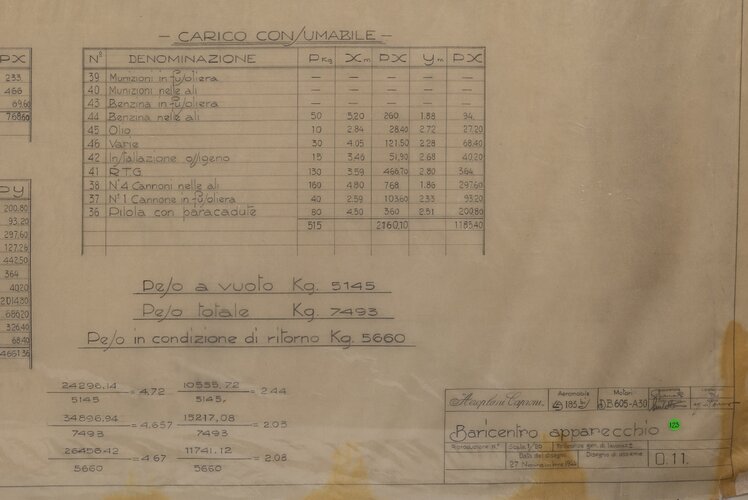 — CARICO CONSUMABILE —
Nº DENOMINAZIONE P Kg. X m PX Y m PX
39 Munizioni in fusoliera — — — — —
40 Munizioni nelle ali — — — — —
43 Benzina in fusoliera — — — — —
44 Benzina nelle ali 50 5,20 260 1.88 94.
45 Olio 10 2.84 28.40 2.72 27.20
46 Varie 30 4.05 121.50 2.28 68.40
42 Installazione ossigeno 15 3.46 51.90 2.68 40.20
41 R.T.G. 130 3.59 466.70 2.80 364
38 Nº4 Cannoni nelle ali 160 4.80 768 1.86 297.60
37 Nº1 Cannone in fusoliera 40 2.59 103.60 2.33 93.20
36 Pilota con paracadute 80 4.50 360 2.51 200.80
515 2160,10 1185.40
PX
233
466
69,60
768,60
PY
200.80
93.20
297.60
127.26
442.50
364
40.20
2014.80
686.20
326.40
68.40
4661.36
Peso a vuoto Kg. 5145
Peso totale Kg. 7493
Peso in condizione di ritorno Kg. 5660
24296.14 / 5145 = 4,72 10555,72 / 5145, = 2.44
34896.94 / 7493 = 4.657 15217,08 / 7493 = 2.03
26456.42 / 5660 = 4.67 11741.12 / 5660 = 2.08
Aeroplani Caproni Aeromobile 183 Motori D.B.605-A30
Baricentro apparecchio 123
Riproduzione nº Scala 1/20 Tolleranze gen. di lavoraz.
Data del disegno Disegno di assieme 0.11.
27 Novembre